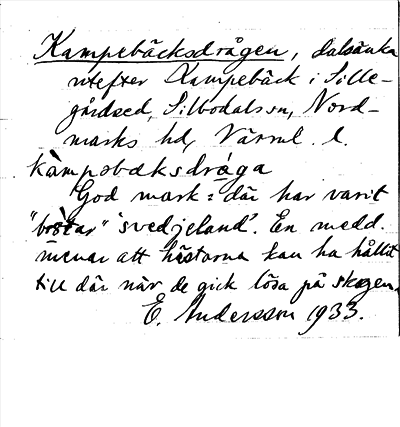 Kampebäcksdrågen, dalsänka
utefter Kampebäck i Sille-
gårdsed, Silbodals sn, Nord-
marks hd, Värml. l.
kàmpobæksdråga
God mark: där har varit
"bråtar" 'svedjeland'. En medd.
menar att hästarna kan ha hållit
till där när de gick lösa på skogen.
E. Andersson 1933.